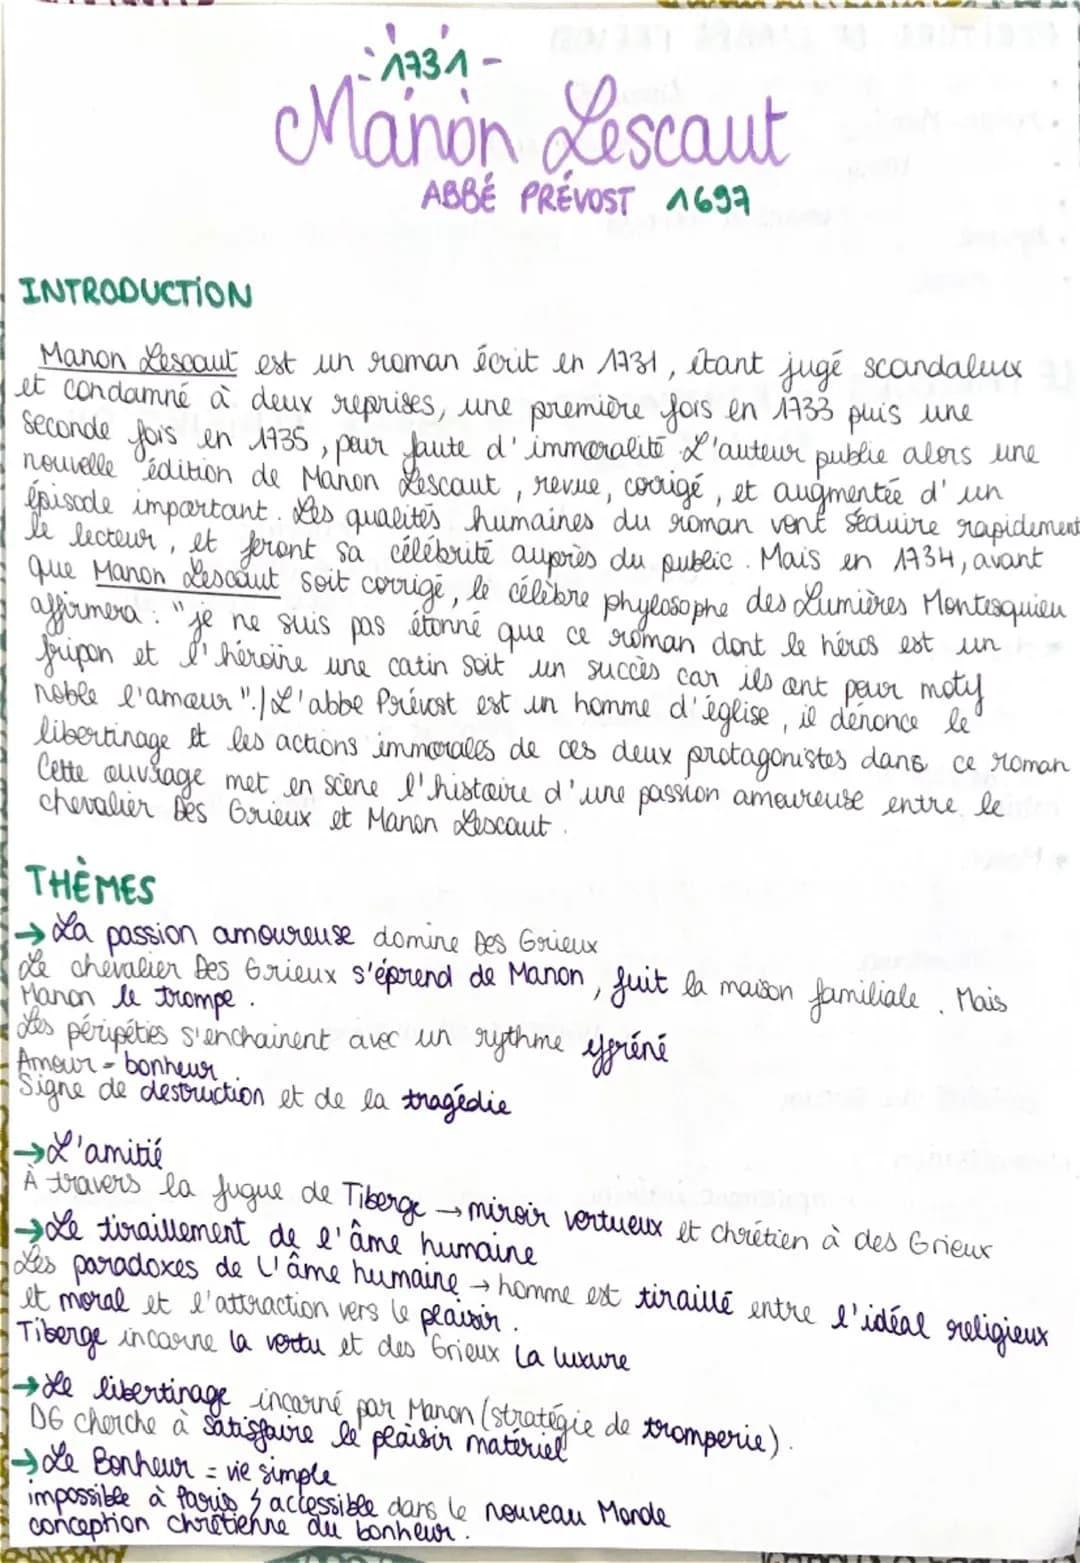 -1731-
Manon Lescaut
ABBÉ PRÉVOST 1697
INTRODUCTION
Manon Lescaut est un roman écrit en 1731, étant jugé scandaleux
et condamné à deux reprises, une première fois en 1733 puis une
seconde fois en 1735, pour faute d'immoralité. L'auteur publie alors une
nouvelle édition de Manon Lescaut, revue, corrigé, et augmentée d'un
épisode important. Les qualités humaines du roman vont séduire rapidement
le lecteur, et feront sa célébrité auprès du public. Mais en 1734, avant
que Manon Lescaut soit corrigé, le célèbre phylosophe des Lumières Montesquieu
affirmera : "je ne suis pas étonné que ce roman dont le héros est un
fripon et l'héroïne une catin soit un succès car ils ont pour motif
noble l'amour"./ L'abbe Prévost est un homme d'église, il dénonce le
libertinage et les actions immorales de ces deux protagonistes dans ce roman
Cette ouvrage met en scène l'histoire d'une passion amoureuse entre le
chevalier Des Grieux et Manon Lescaut.
THÈMES
→ La passion amoureuse domine Des Grieux
Le chevalier Des Grieux s'éprend de Manon, fuit la maison familiale. Mais
Manon le trompe.
Les péripéties s'enchainent avec un rythme effréné
Amour = bonheur
Signe de destruction et de la tragédie
→ L'amitié
À travers la fugue de Tiberge → miroir vertueux et chrétien à des Grieux
→ Le tiraillement de l'âme humaine
Les paradoxes de l'âme humaine → homme est tiraillé entre l'idéal religieux
et moral et l'attraction vers le plaisir.
Tiberge incarne la vertu et des Grieux la luxure
→ Le libertinage incarné par Manon (stratégie de tromperie).
DG cherche à satisfaire le plaisir matériel
→ Le Bonheur = vie simple
impossible à Paris ≠ accessible dans le nouveau Monde
conception chrétienne du bonheur.